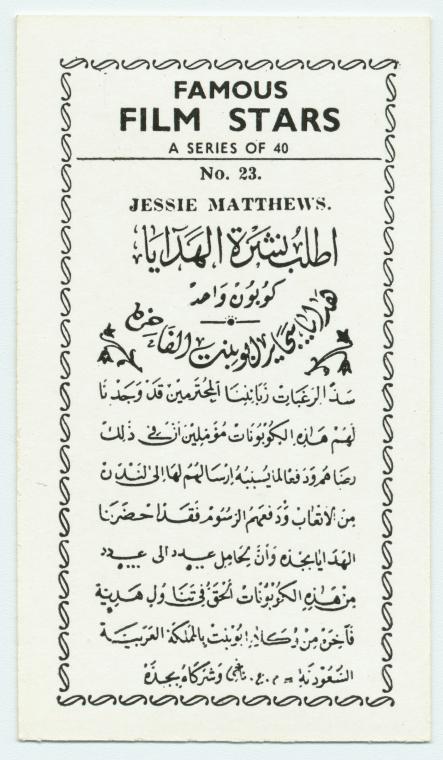 FAMOUS
FILM STARS
A SERIES OF 40
No. 23.
JESSIE MATTHEWS.
اطلب نشرة الهدايا
كوبون واحد
هدايا سجاير البوينت الفاخره
سدًّا لرغبات زبائننا المحترمين قد وجدنا
لهم هذه الكوبونات مؤملين أن في ذلك
رضاهم ودفعا لما يسببه إرسالهم لها إلى لندن
من الأتعاب ودفعهم الرسوم فقد احضرنا
الهدايا بجده وأن لحامل عدد الى عدد
من هذه الكوبونات الحق في تناول هدية
فاخره من وكلاء ابوبنت بالمملكة العربية
السعودية وشركاه بجدة